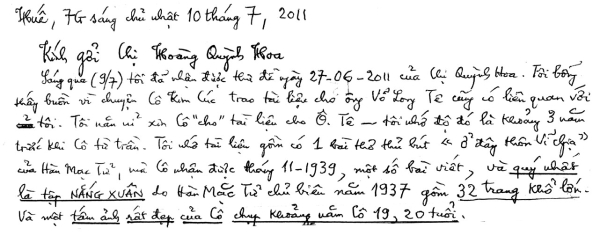 Huế, 7G sáng chủ nhật 10 tháng 7, 2011
Kính gởi Chị Hoàng Quỳnh Hoa
Sáng qua (9/7) tôi đã nhận được thư đề ngày 27-06-2011 của Chị Quỳnh Hoa. Tôi bỗng
thấy buồn vì chuyện Cô Kim Cúc trao tài liệu cho ông Võ Long Tê cũng có liên quan với
tôi. Tôi năn nỉ xin Cô "cho" tài liệu cho Ô. Tê — tôi nhớ độ đó là khoảng 3 năm
trước khi Cô từ trần. Tôi nhớ tài liệu gồm có 1 bài thơ thủ bút « Ở đây thôn Vĩ Giạ »
của Hàn Mac Tử, mà Cô nhận được tháng 11-1939, một số bài viết, và quý nhất
là tập NẮNG XUÂN do Hàn Mặc Tử chủ biên năm 1937 gồm 32 trang khổ lớn.
Và một tấm ảnh rất đẹp của Cô chụp khoảng năm Cô 19, 20 tuổi.